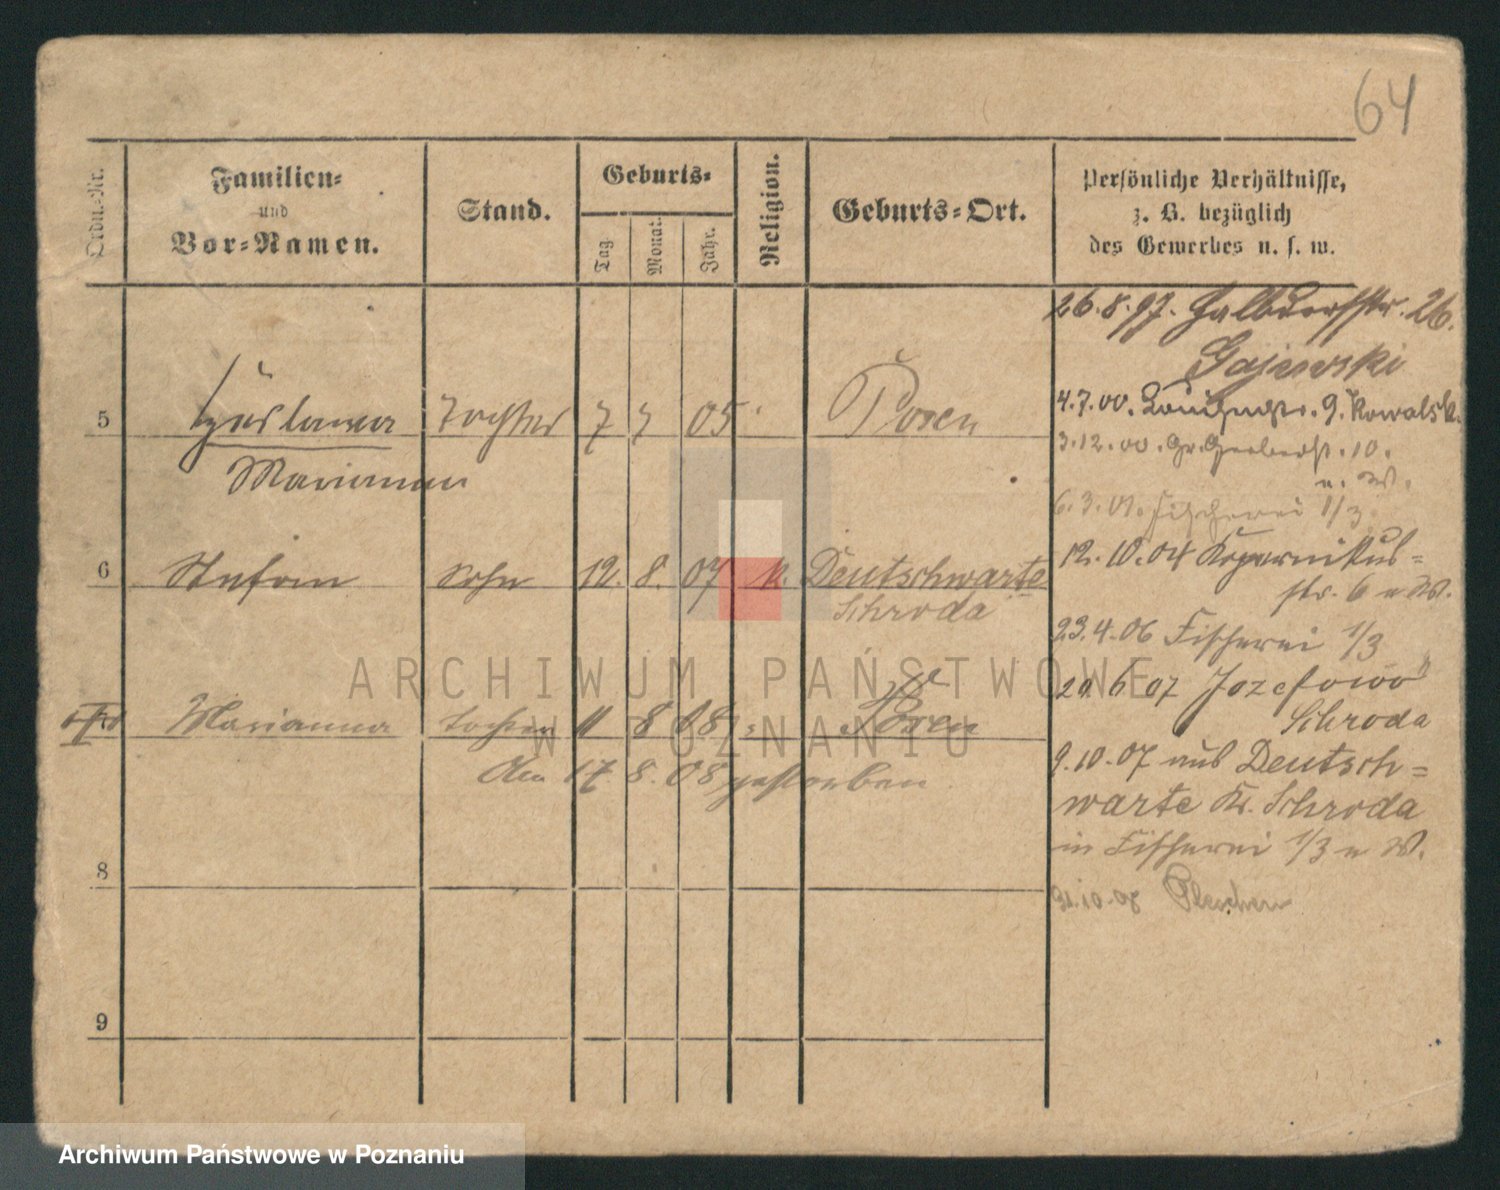 64
Ordn.-Nr.
Familien-
und
Vor-Namen.
Stand.
Geburts-
Tag
Monat.
Jahr.
Religion.
Geburts-Ort.
Persönliche Verhältnisse,
z. B. bezüglich
des Gewerbes u. s. w.
26.8.97. Halbdorfstr. 26.
Gajewski
5 Tochter 7 7 05 Posen
Marianna
4.7.00. 9. Kowalsk.
3.12.00. Gr. Gerberst. 10.
u. W.
6.3.01. Fischerei 1/3
6 Stefan Sohn 12. 8. 07 k. Deutschwarte
Schroda
12.10.04 Kopernikus=
str. 6 u W.
23.4.06 Fischerei 1/3
29.6.07 Jozefowo
Schroda
Marianna Tochter 11 8 08 Posen
den 17. 8. 08 gestorben
9.10.07 aus Deutsch=
warte Kr. Schroda
in Fischerei 1/3 u W.
8
21.10.08 Pleschen
9
ARCHIWUM PAŃSTWOWE
W POZNANIU
Archiwum Państwowe w Poznaniu